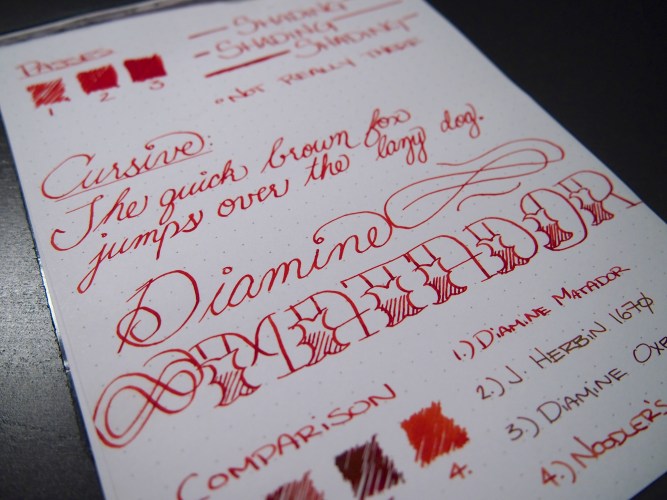 PASSES
1. 2 3
SHADING
SHADING
SHADING
NOT REALLY THERE
Cursive:
The quick brown fox
jumps over the lazy dog.
Diamine
MATADOR
COMPARISON
4.
1.) DIAMINE MATADOR
2.) J. HERBIN 1670
3.) DIAMINE OXB
4.) NOODLER'S